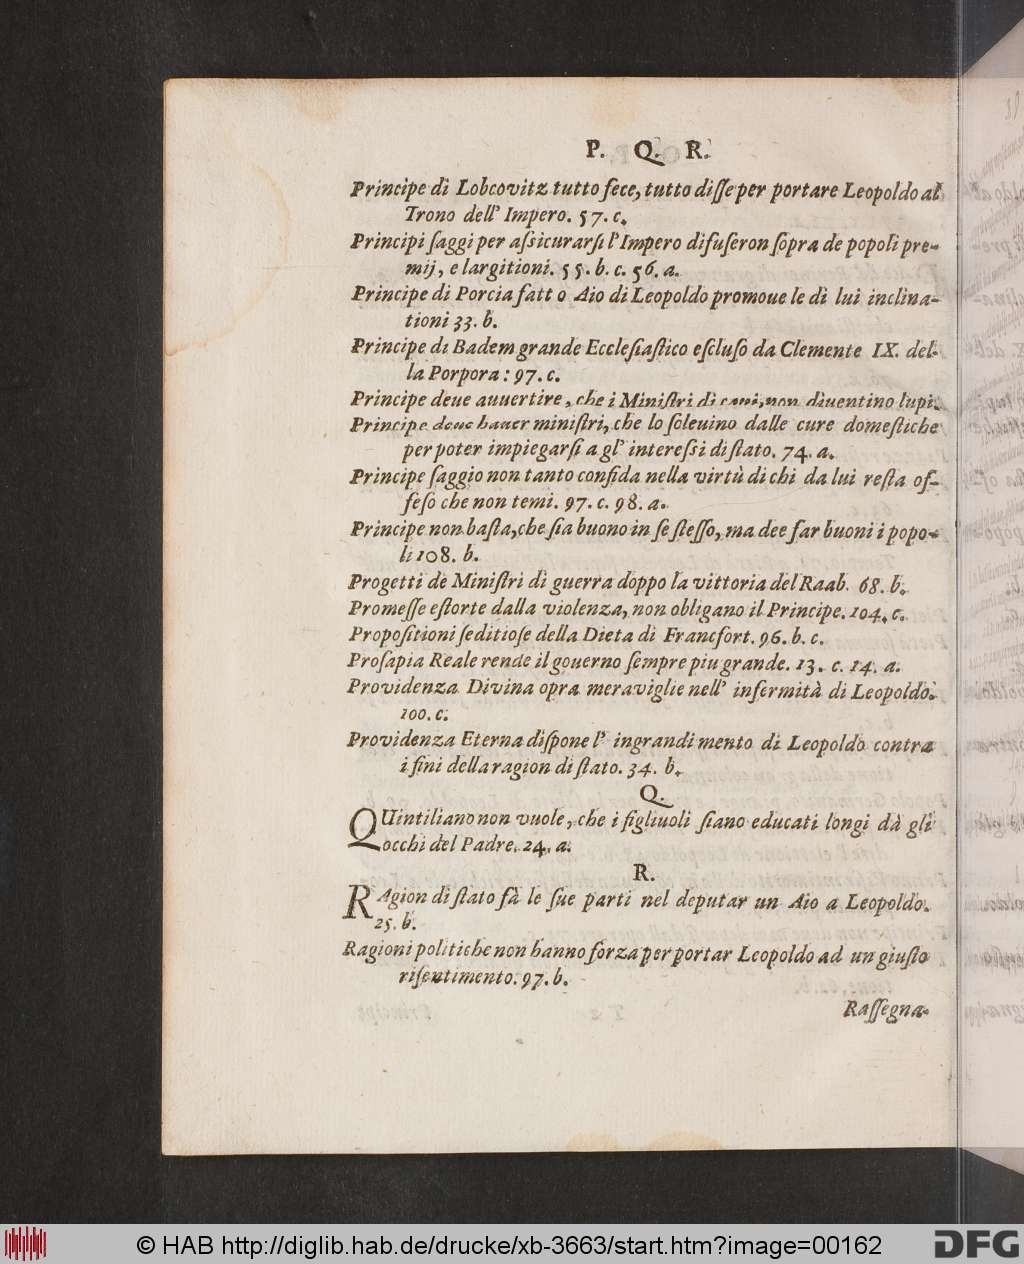 P. Q. R.
Principe di Lobcovitz tutto fece, tutto diſſe per portare Leopoldo al
Trono dell' Impero. 57. c.
Principi ſaggi per aſsicurarſi l'Impero difuſeron ſopra de popoli pre-
mij, e largitioni. 55. b. c. 56. a.
Principe di Porcia fatto Aio di Leopoldo promoue le di lui inclina-
tioni 33. b.
Principe di Badem grande Eccleſiaſtico eſcluſo da Clemente IX. del-
la Porpora: 97. c.
Principe deue auuertire, che i Miniſtri di cani, non diuentino lupi.
Principe deue hauer miniſtri, che lo ſoleuino dalle cure domeſtiche
per poter impiegarſi a gl' intereſsi di ſtato. 74. a.
Principe ſaggio non tanto confida nella virtù di chi da lui reſta of-
feſo che non temi. 97. c. 98. a.
Principe non baſta, che ſia buono in ſe ſteſſo, ma dee far buoni i popo-
li 108. b.
Progetti de Miniſtri di guerra doppo la vittoria del Raab. 68. b.
Promeſſe eſtorte dalla violenza, non obligano il Principe. 104. c.
Propoſitioni ſeditioſe della Dieta di Francfort. 96. b. c.
Proſapia Reale rende il gouerno ſempre piu grande. 13. c. 14. a.
Providenza Divina opra meraviglie nell' infermità di Leopoldo.
100. c.
Providenza Eterna diſpone l' ingrandimento di Leopoldo contra
i fini della ragion di ſtato. 34. b.
Q.
QUintiliano non vuole, che i figliuoli ſiano educati longi dà gli
occhi del Padre. 24. a.
R.
RAgion di ſtato fà le ſue parti nel deputar un Aio a Leopoldo.
25. b.
Ragioni politiche non hanno forza per portar Leopoldo ad un giuſto
riſentimento. 97. b.
Raſſegna-
© HAB http://diglib.hab.de/drucke/xb-3663/start.htm?image=00162
DFG